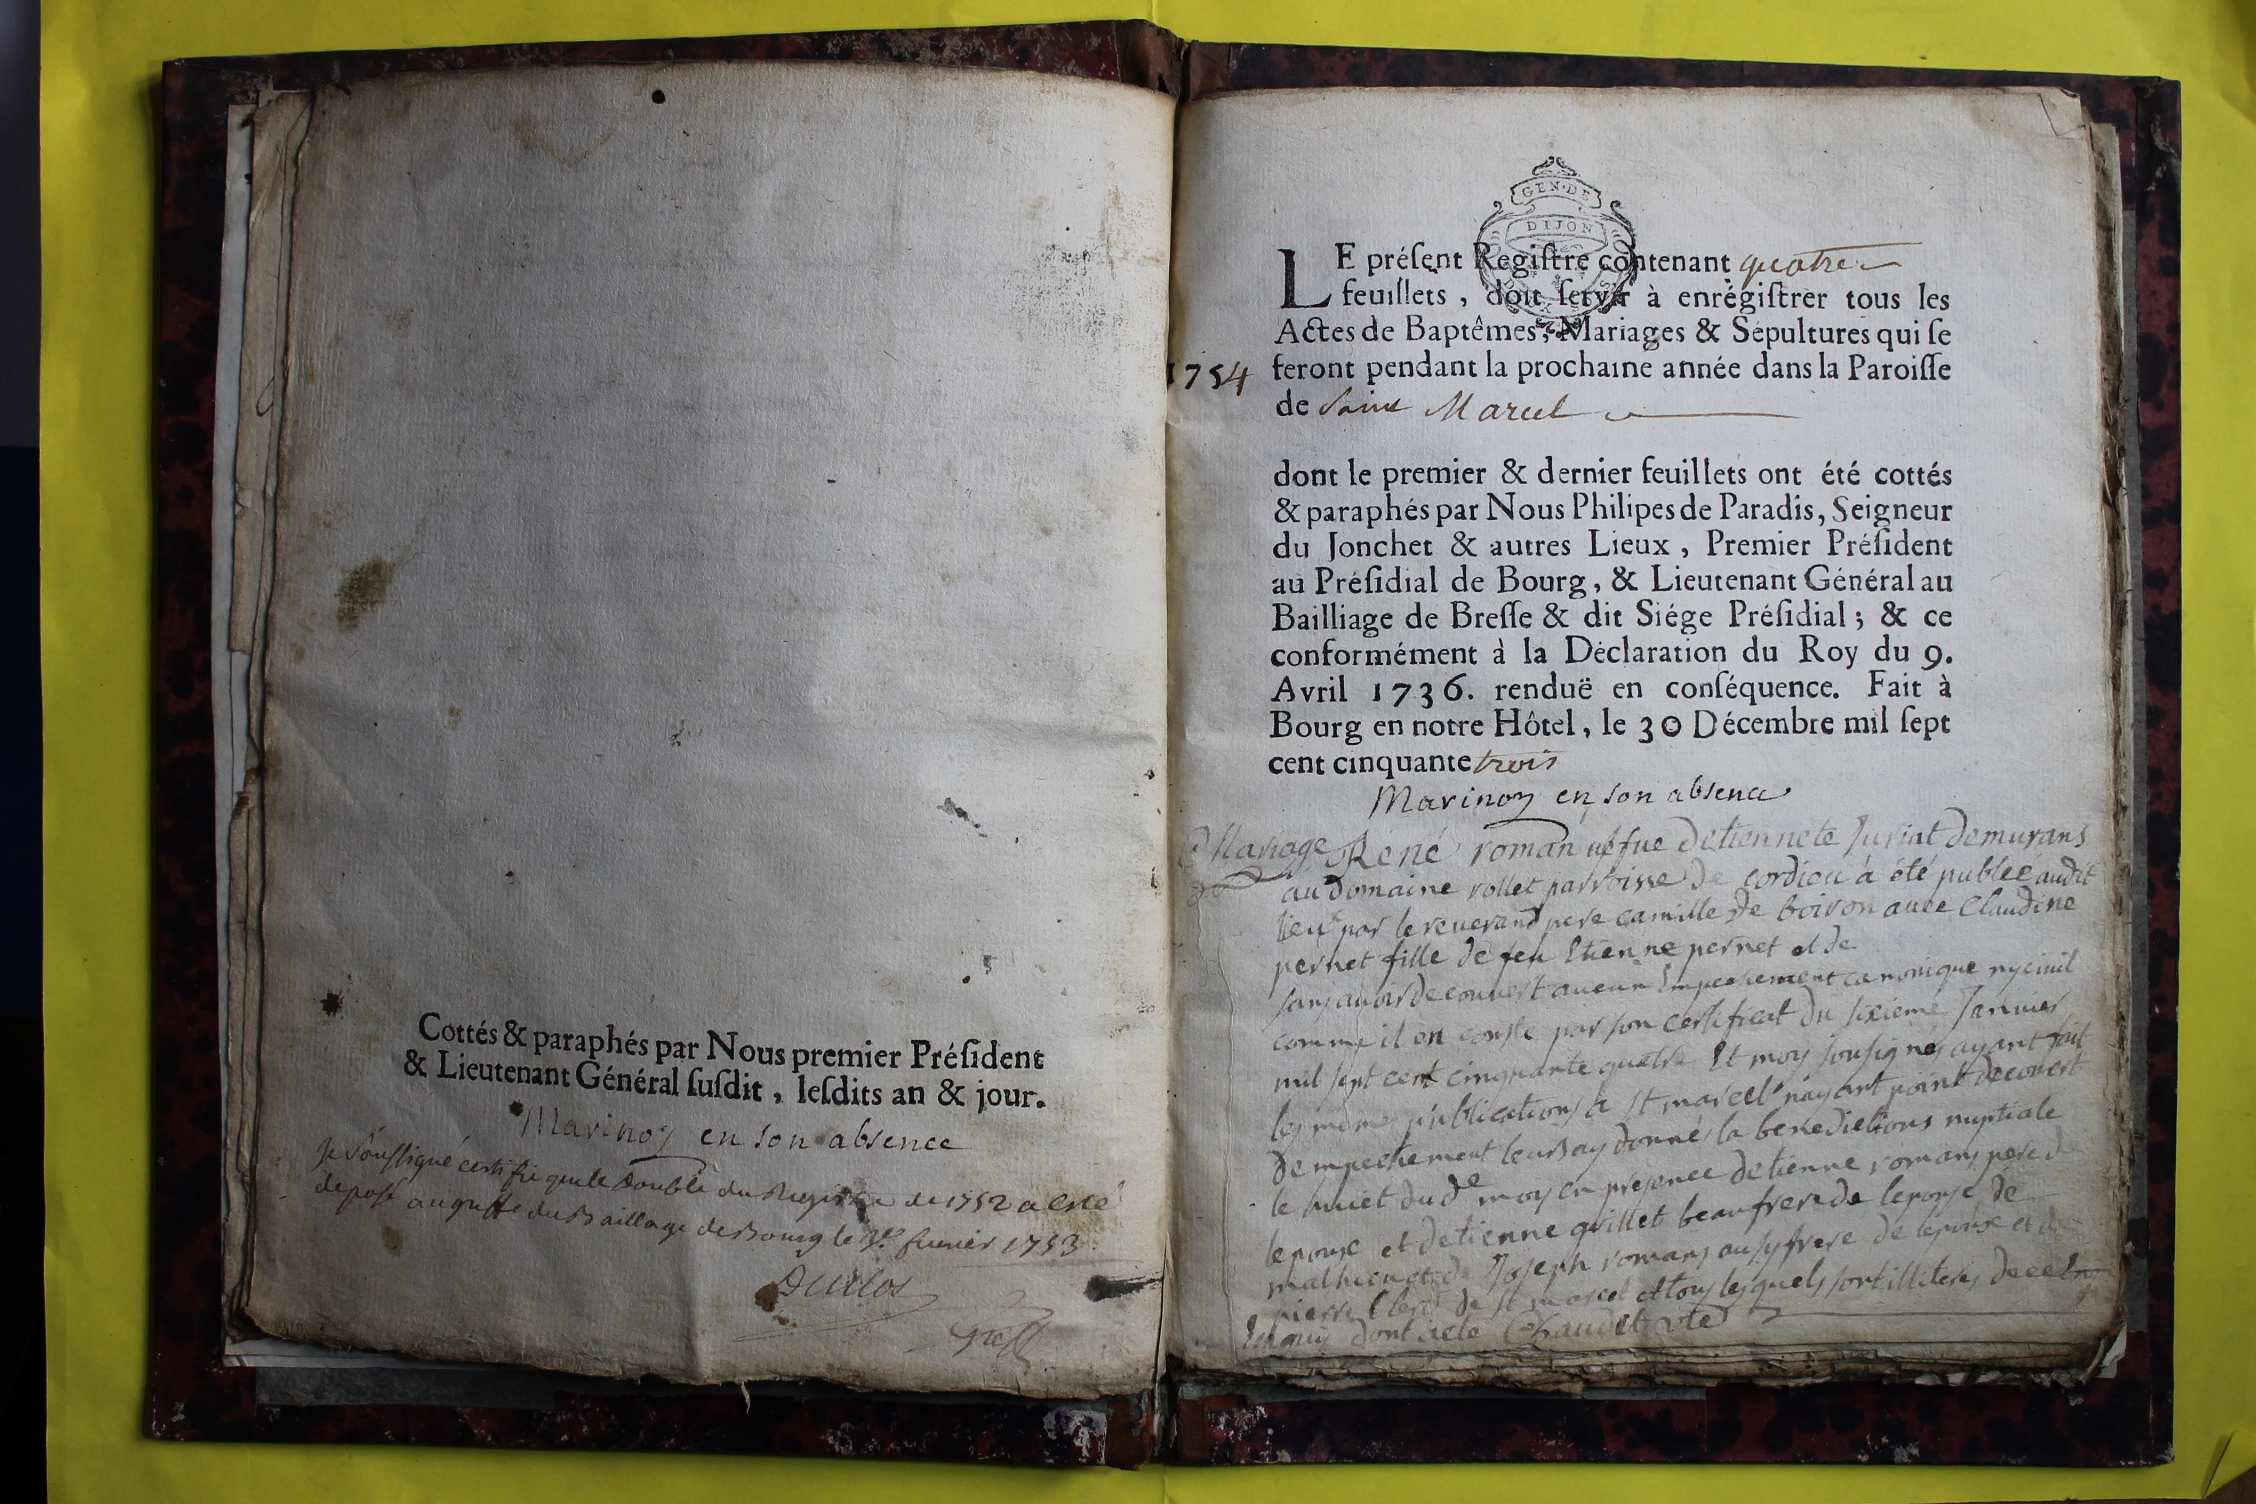 Cottés & paraphés par Nous premier Préſident
& Lieutenant Général ſuſdit, leſdits an & jour.
Marinoz en son absence
Je Soussigné certifie que le Double du Registre de 1752 a esté
deposé au greffe du Baillage de Bourg le fevrier 1753
Duclos
GEN·DE
DIJON
LE préſent Regiſtre contenant quatre
feuillets, doit ſervir à enrégiſtrer tous les
Actes de Baptêmes, Mariages & Sépultures qui ſe
1754 feront pendant la prochaine année dans la Paroiſſe
de Saint Marcel
dont le premier & dernier feuillets ont été cottés
& paraphés par Nous Philipes de Paradis, Seigneur
du Jonchet & autres Lieux, Premier Préſident
au Préſidial de Bourg, & Lieutenant Général au
Bailliage de Breſſe & dit Siége Préſidial; & ce
conformément à la Déclaration du Roy du 9.
Avril 1736. renduë en conſéquence. Fait à
Bourg en notre Hôtel, le 30 Décembre mil ſept
cent cinquante trois
Marinoz en son absence
Mariage René roman detiennete Juriat demurans
au Domaine rollet parroisse de cordieu à été publée audit
lieu par le reuerand pere camille de boiron auec Claudine
pernet fille de feu Etienne pernet et de
sans auoir decouuert aucun Empechement canonique ny ciuil
comme il en conste par son certificat du sixieme Januier
mil sept cent cinquante quatre Et moy sousigné ayant fait
les mêmes publications a st marcel n'ayant point decouert
dempechement leurs ay donné la benedictions nuptiale
le huiet du de moy en presence detienne romans pere de
lepouse et detienne quillet beaufrere de lepouse de
mathieu et de Joseph romans ausy frere de lepoux et de
pierre Clerc de st marcel et tous les quels sont illiteres de ce
Enquis dont acte Chaudet